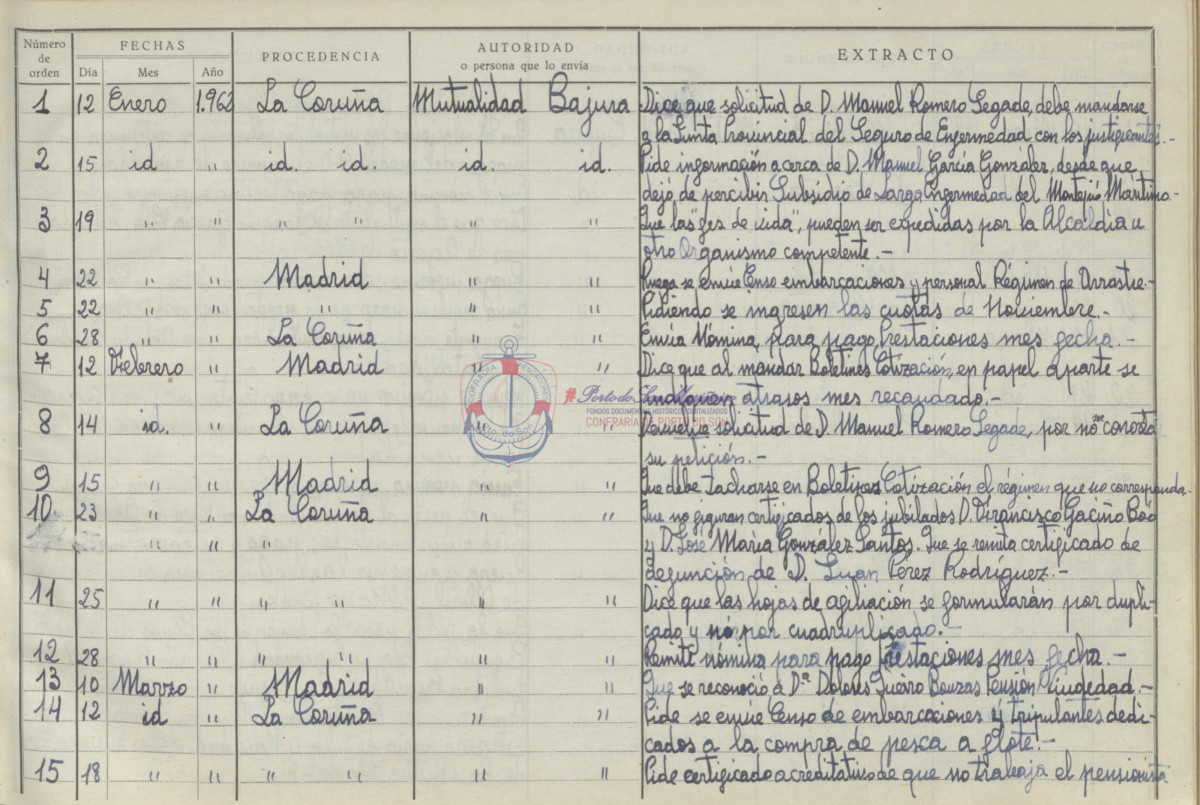 Número de orden FECHAS PROCEDENCIA AUTORIDAD o persona que lo envía EXTRACTO
Día Mes Año
1 12 Enero 1.962 La Coruña Mutualidad Bajura Dice que solicitud de D. Manuel Romero Segade, debe mandarse
a la Junta Provincial del Seguro de Enfermedad con los justificantes.-
2 15 id " id. id. id. id. Pide información acerca de D. Manuel García González, desde que
dejó de percibir Subsidio de Larga Enfermedad del Montepío Marítimo.
3 19 " " " " " " Que las "fes de vida", pueden ser expedidas por la Alcaldía u
otro Organismo competente.-
4 22 " " Madrid " " Ruega se envíe Censo embarcaciones y personal Régimen de Arrastre.-
5 22 " " " " " Pidiendo se ingresen las cuotas de Noviembre.-
6 28 " " La Coruña " " Envía Nómina, para pago Prestaciones mes fecha.-
7 12 Febrero " Madrid " " Dice que al mandar Boletines Cotización, en papel aparte se
indiquen atrasos mes recaudado.-
8 14 id. " La Coruña " " solicitud de D. Manuel Romero Segade, por no
su petición.-
9 15 " " Madrid " " Que debe Tacharse en Boletines Cotización el régimen que no corresponda.
10 23 " " La Coruña " " Que no figuran certificados de los jubilados D. Francisco Gaciño Boo
" " y D. José María González Santos. Que se remita certificado de
defunción de D. Juan Pérez Rodríguez.-
11 25 " " " " " " Dice que las hojas de afiliación se formularán por dupli-
cado y nó por cuadruplicado.-
12 28 " " " " " " Remite nómina para pago Prestaciones mes fecha.-
13 10 Marzo " Madrid " " Que se reconoció a Dª Dolores Bouzas Pensión Viudedad.-
14 12 id " La Coruña " " Pide se envíe Censo de embarcaciones y tripulantes dedi-
cados a la compra de pesca a flote.-
15 18 " " " " " " Pide certificado acreditativo de que no trabaja el pensionista
CONFRARÍA
Porto do Son
#Porto do Son
FONDOS DOCUMENTAIS HISTÓRICOS DIXITALIZADOS
CONFRARÍA DE PORTO DO SON